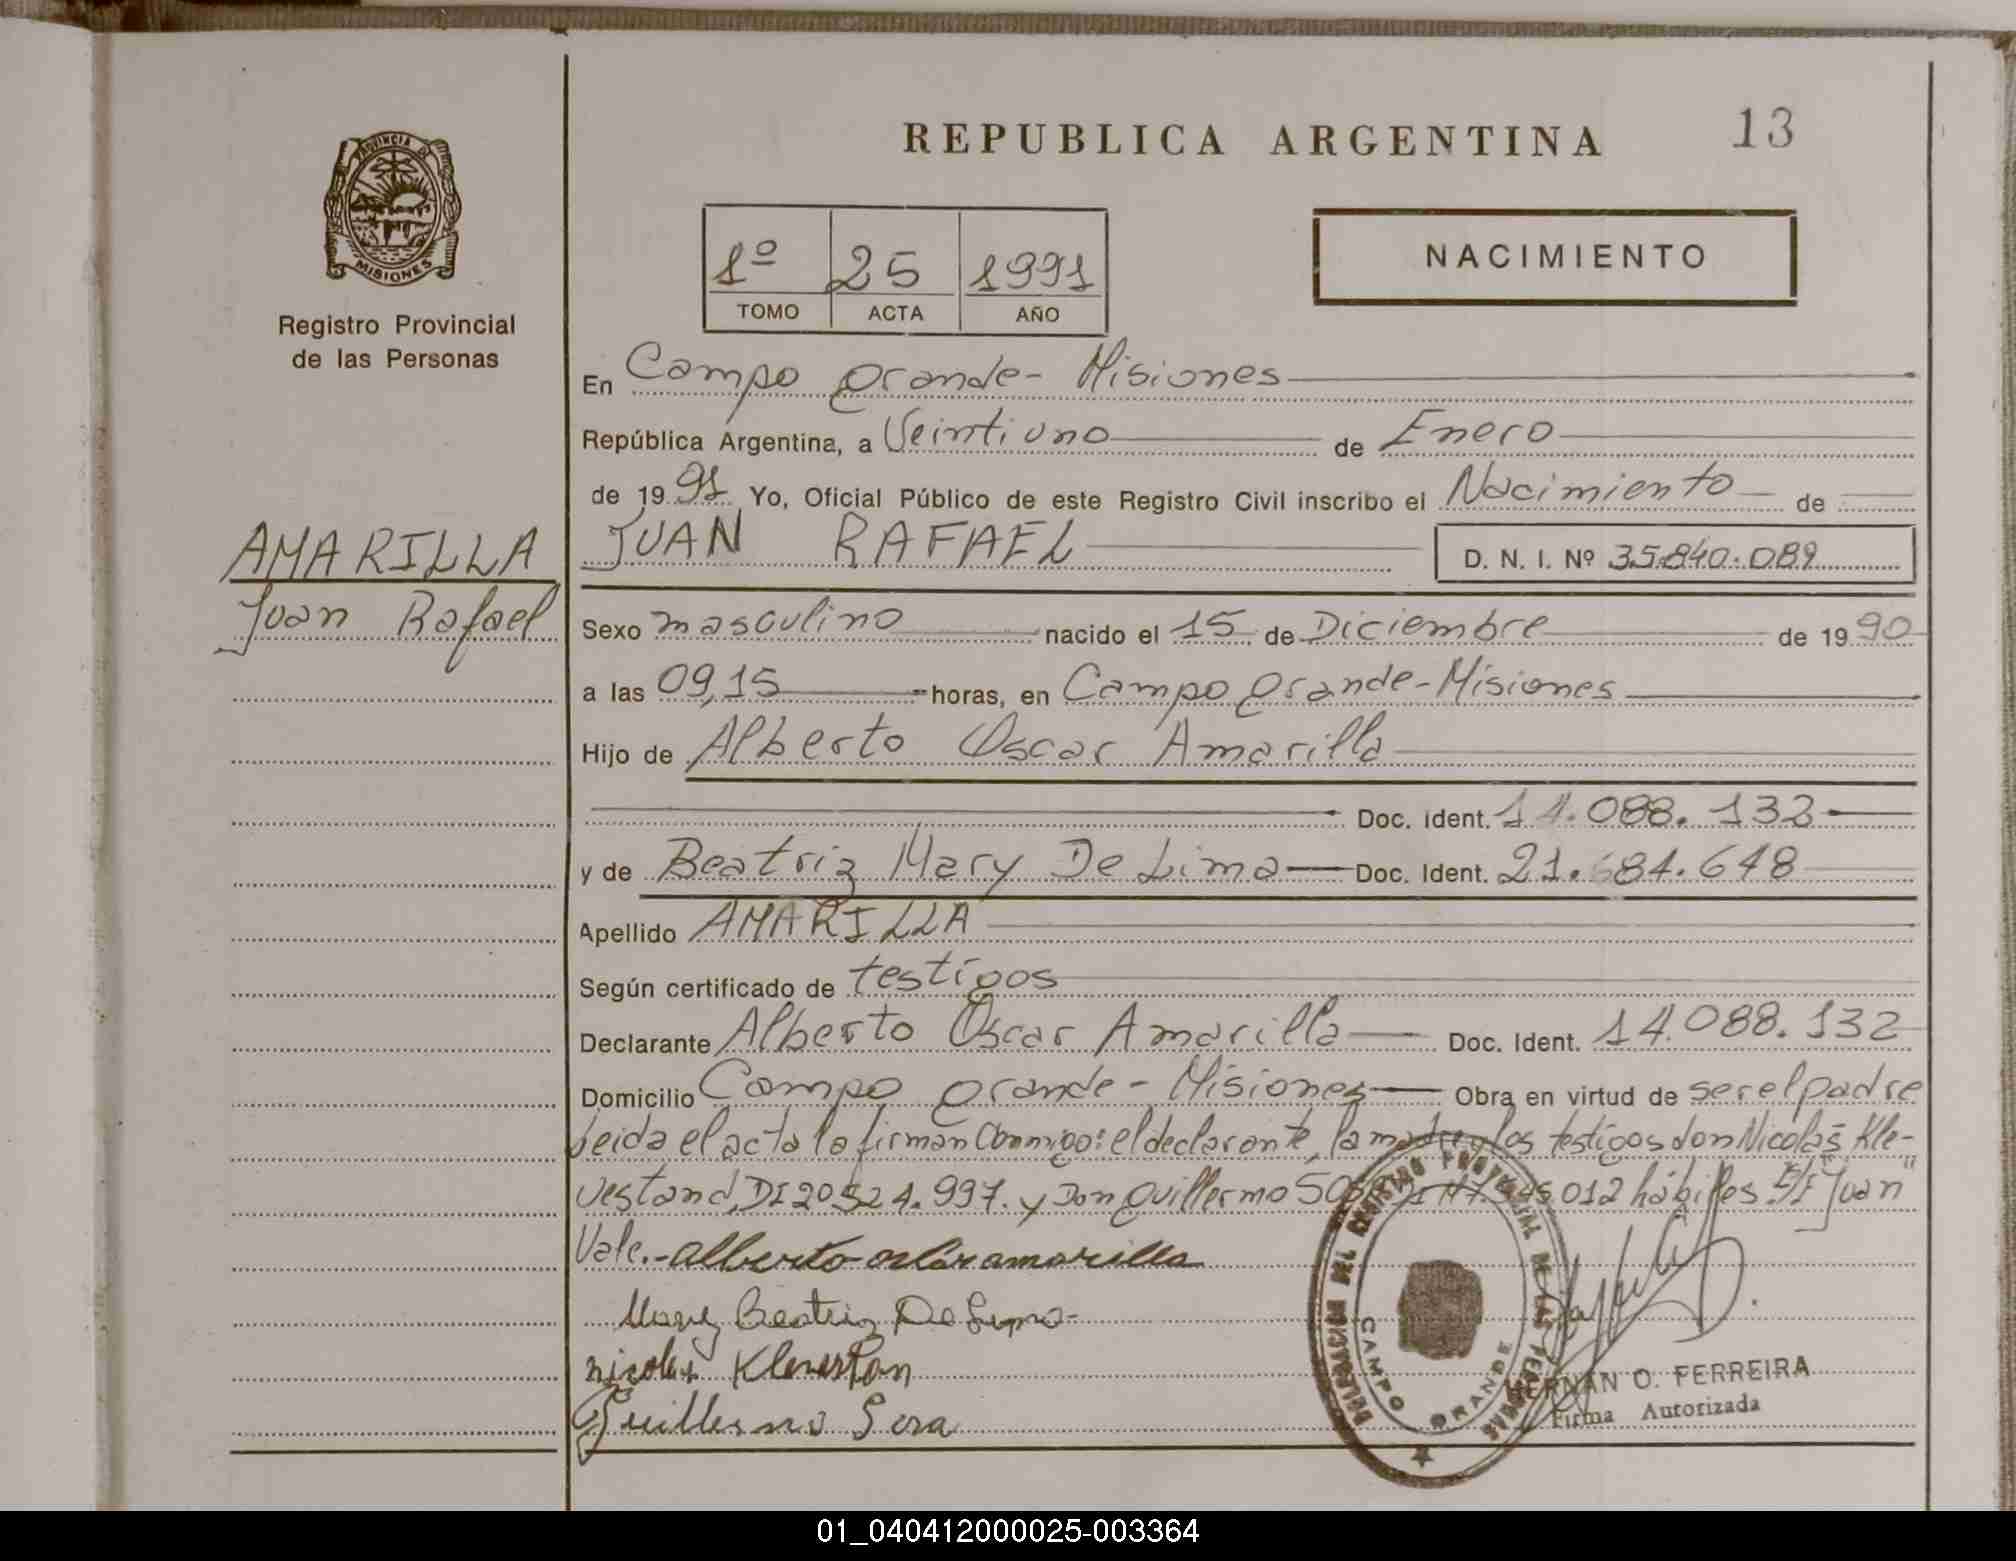 REPUBLICA ARGENTINA
13
PROVINCIA DE
MISIONES
Registro Provincial
de las Personas
1º 25 1991
TOMO ACTA AÑO
NACIMIENTO
En Campo Grande - Misiones
República Argentina, a Veintiuno de Enero
de 1991 Yo, Oficial Público de este Registro Civil inscribo el Nacimiento de
AMARILLA
Juan Rafael
JUAN RAFAEL D. N. I. Nº 35.840.089
Sexo masculino nacido el 15 de Diciembre de 1990
a las 09,15 horas, en Campo Grande - Misiones
Hijo de Alberto Oscar Amarilla
Doc. Ident. 14.088.132
y de Beatriz Mary De Lima Doc. Ident. 21.684.648
Apellido AMARILLA
Según certificado de testigos
Declarante Alberto Oscar Amarilla Doc. Ident. 14.088.132
Domicilio Campo Grande - Misiones Obra en virtud de ser el padre
Leida el acta la firman Conmigo: el declarante, la madre y los testigos don Nicolas Kle-
vestand, DI 20.524.997. y Don Guillermo 012 hábiles E/I "Juan"
Vale.- Alberto Amarilla
Mary Beatriz De Lima
Nicolas Klevestan
Guillermo Sosa
DELEGACION DEL REGISTRO PROVINCIAL DE LAS PERSONAS
CAMPO GRANDE
HERNAN O. FERREIRA
Firma Autorizada
01_040412000025-003364